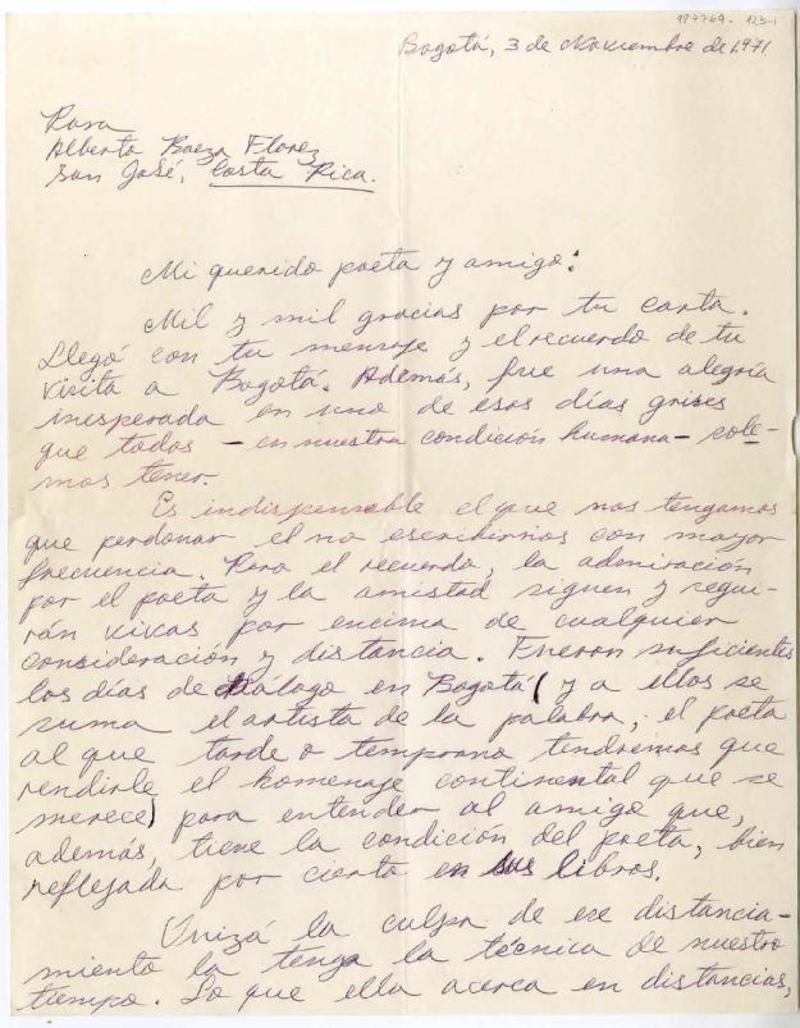 187769. 123-1
Bogotá, 3 de Noviembre de 1.971.
Para
Alberto Baeza Flores
San José, Costa Rica.
Mi querido poeta y amigo:
Mil y mil gracias por tu carta.
Llegó con tu mensaje y el recuerdo de tu
visita a Bogotá. Además, fue una alegría
inesperada en uno de esos días grises
que todos - en nuestra condición humana - sole-
mos tener.
Es indispensable el que nos tengamos
que perdonar el no escribirnos con mayor
frecuencia. Pero el recuerdo, la admiración
por el poeta y la amistad siguen y segui-
rán vivas por encima de cualquier
consideración y distancia. Fueron suficientes
los días de diálogo en Bogotá (y a ellos se
suma el artista de la palabra, el poeta
al que tarde o temprano tendremos que
rendirle el homenaje continental que se
merece) para entender al amigo que,
además, tiene la condición del poeta, bien
reflejada por cierto en sus libros.
Quizá la culpa de ese distancia-
miento la tenga la técnica de nuestro
tiempo. Lo que ella acerca en distancias,